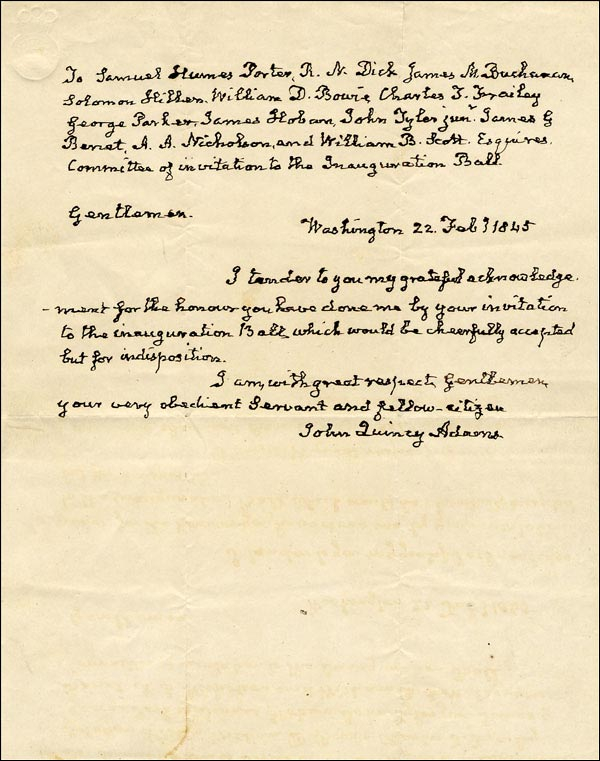 To Samuel Humes Porter, R. N. Dick James M. Buchanan,
Solomon Hillen, William D. Bowie, Charles F. Frailey
George Parker, James Hoban, John Tyler junr. James G
Benet, A. A. Nicholson, and William B. Scott. Esquires.
Committee of invitation to the Inauguration Ball.
Gentlemen.
Washington 22. Feby 1845
I tender to you my grateful acknowledge-
-ment for the honour you have done me by your invitation
to the inauguration Ball, which would be cheerfully accepted
but for indisposition.
I am, with great respect, Gentlemen,
your very obedient Servant and fellow-citizen
John Quincy Adams